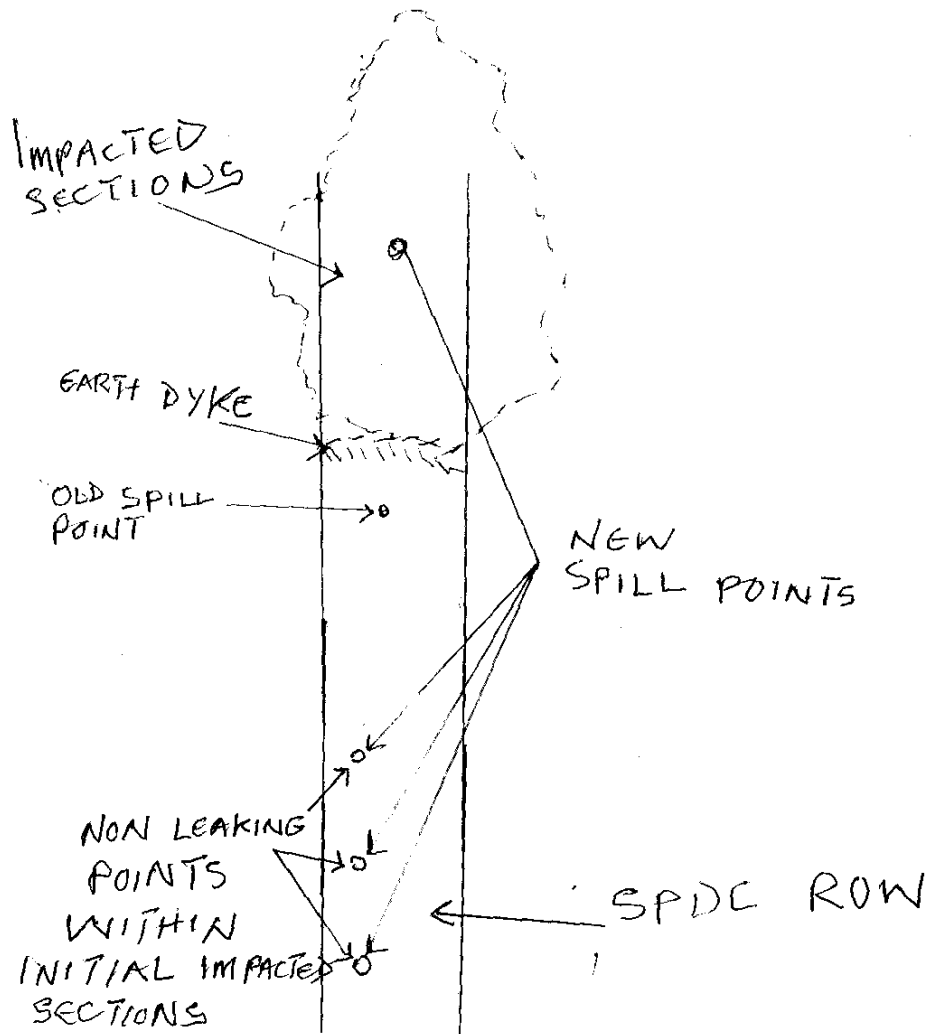 IMPACTED
SECTIONS
EARTH DYKE
OLD SPILL
POINT
NEW
SPILL POINTS
NON LEAKING
POINTS
WITHIN
INITIAL IMPACTED
SECTIONS
SPDC ROW